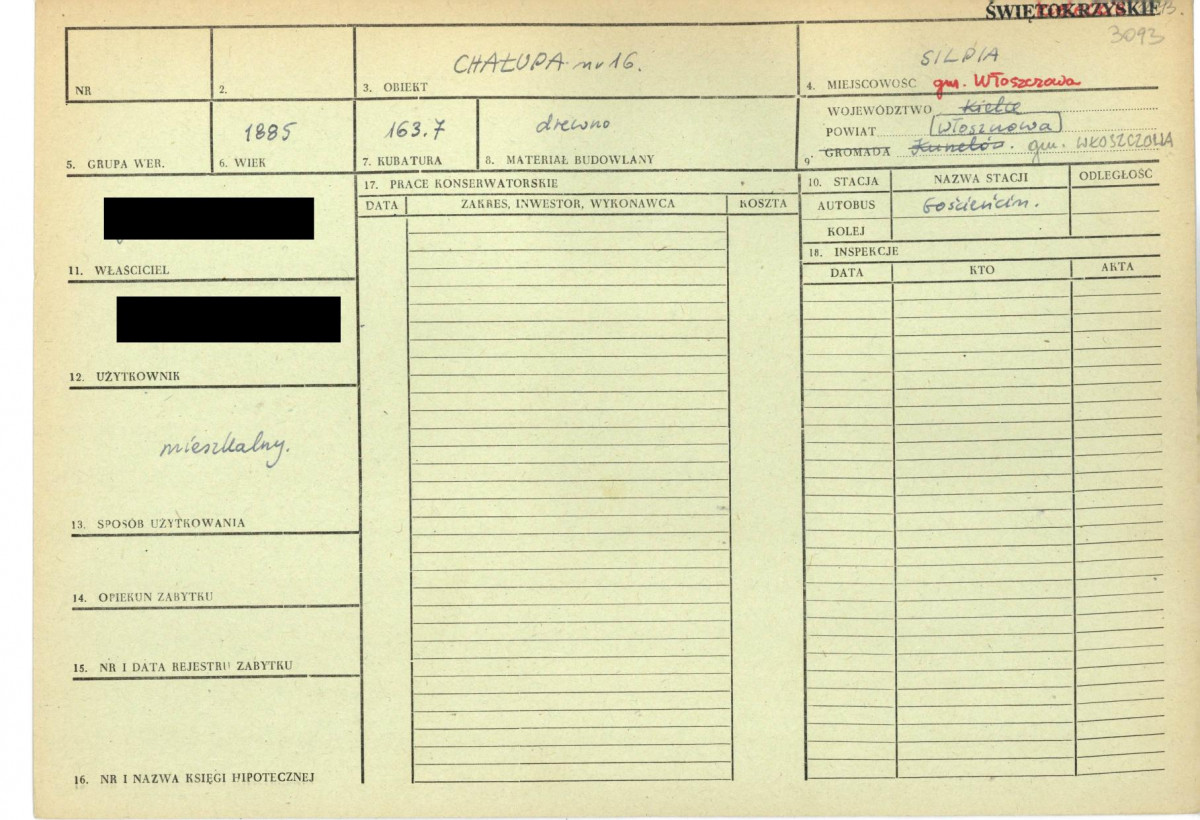 ŚWIĘTOKRZYSKIE
3093
CHAŁUPA nr 16.
SILPIA
NR
2.
3. OBIEKT
4. MIEJSCOWOŚĆ gm. Włoszczowa
WOJEWÓDZTWO Kielce
1885
163.7
drewno
POWIAT Włoszczowa
5. GRUPA WER.
6. WIEK
7. KUBATURA
8. MATERIAŁ BUDOWLANY
9. GROMADA gm. WŁOSZCZOWA
17. PRACE KONSERWATORSKIE
10. STACJA
NAZWA STACJI
ODLEGŁOŚĆ
DATA
ZAKRES, INWESTOR, WYKONAWCA
KOSZTA
AUTOBUS
Gościencin.
KOLEJ
11. WŁAŚCICIEL
18. INSPEKCJE
DATA
KTO
AKTA
12. UŻYTKOWNIK
mieszkalny.
13. SPOSÓB UŻYTKOWANIA
14. OPIEKUN ZABYTKU
15. NR I DATA REJESTRU ZABYTKU
16. NR I NAZWA KSIĘGI HIPOTECZNEJ